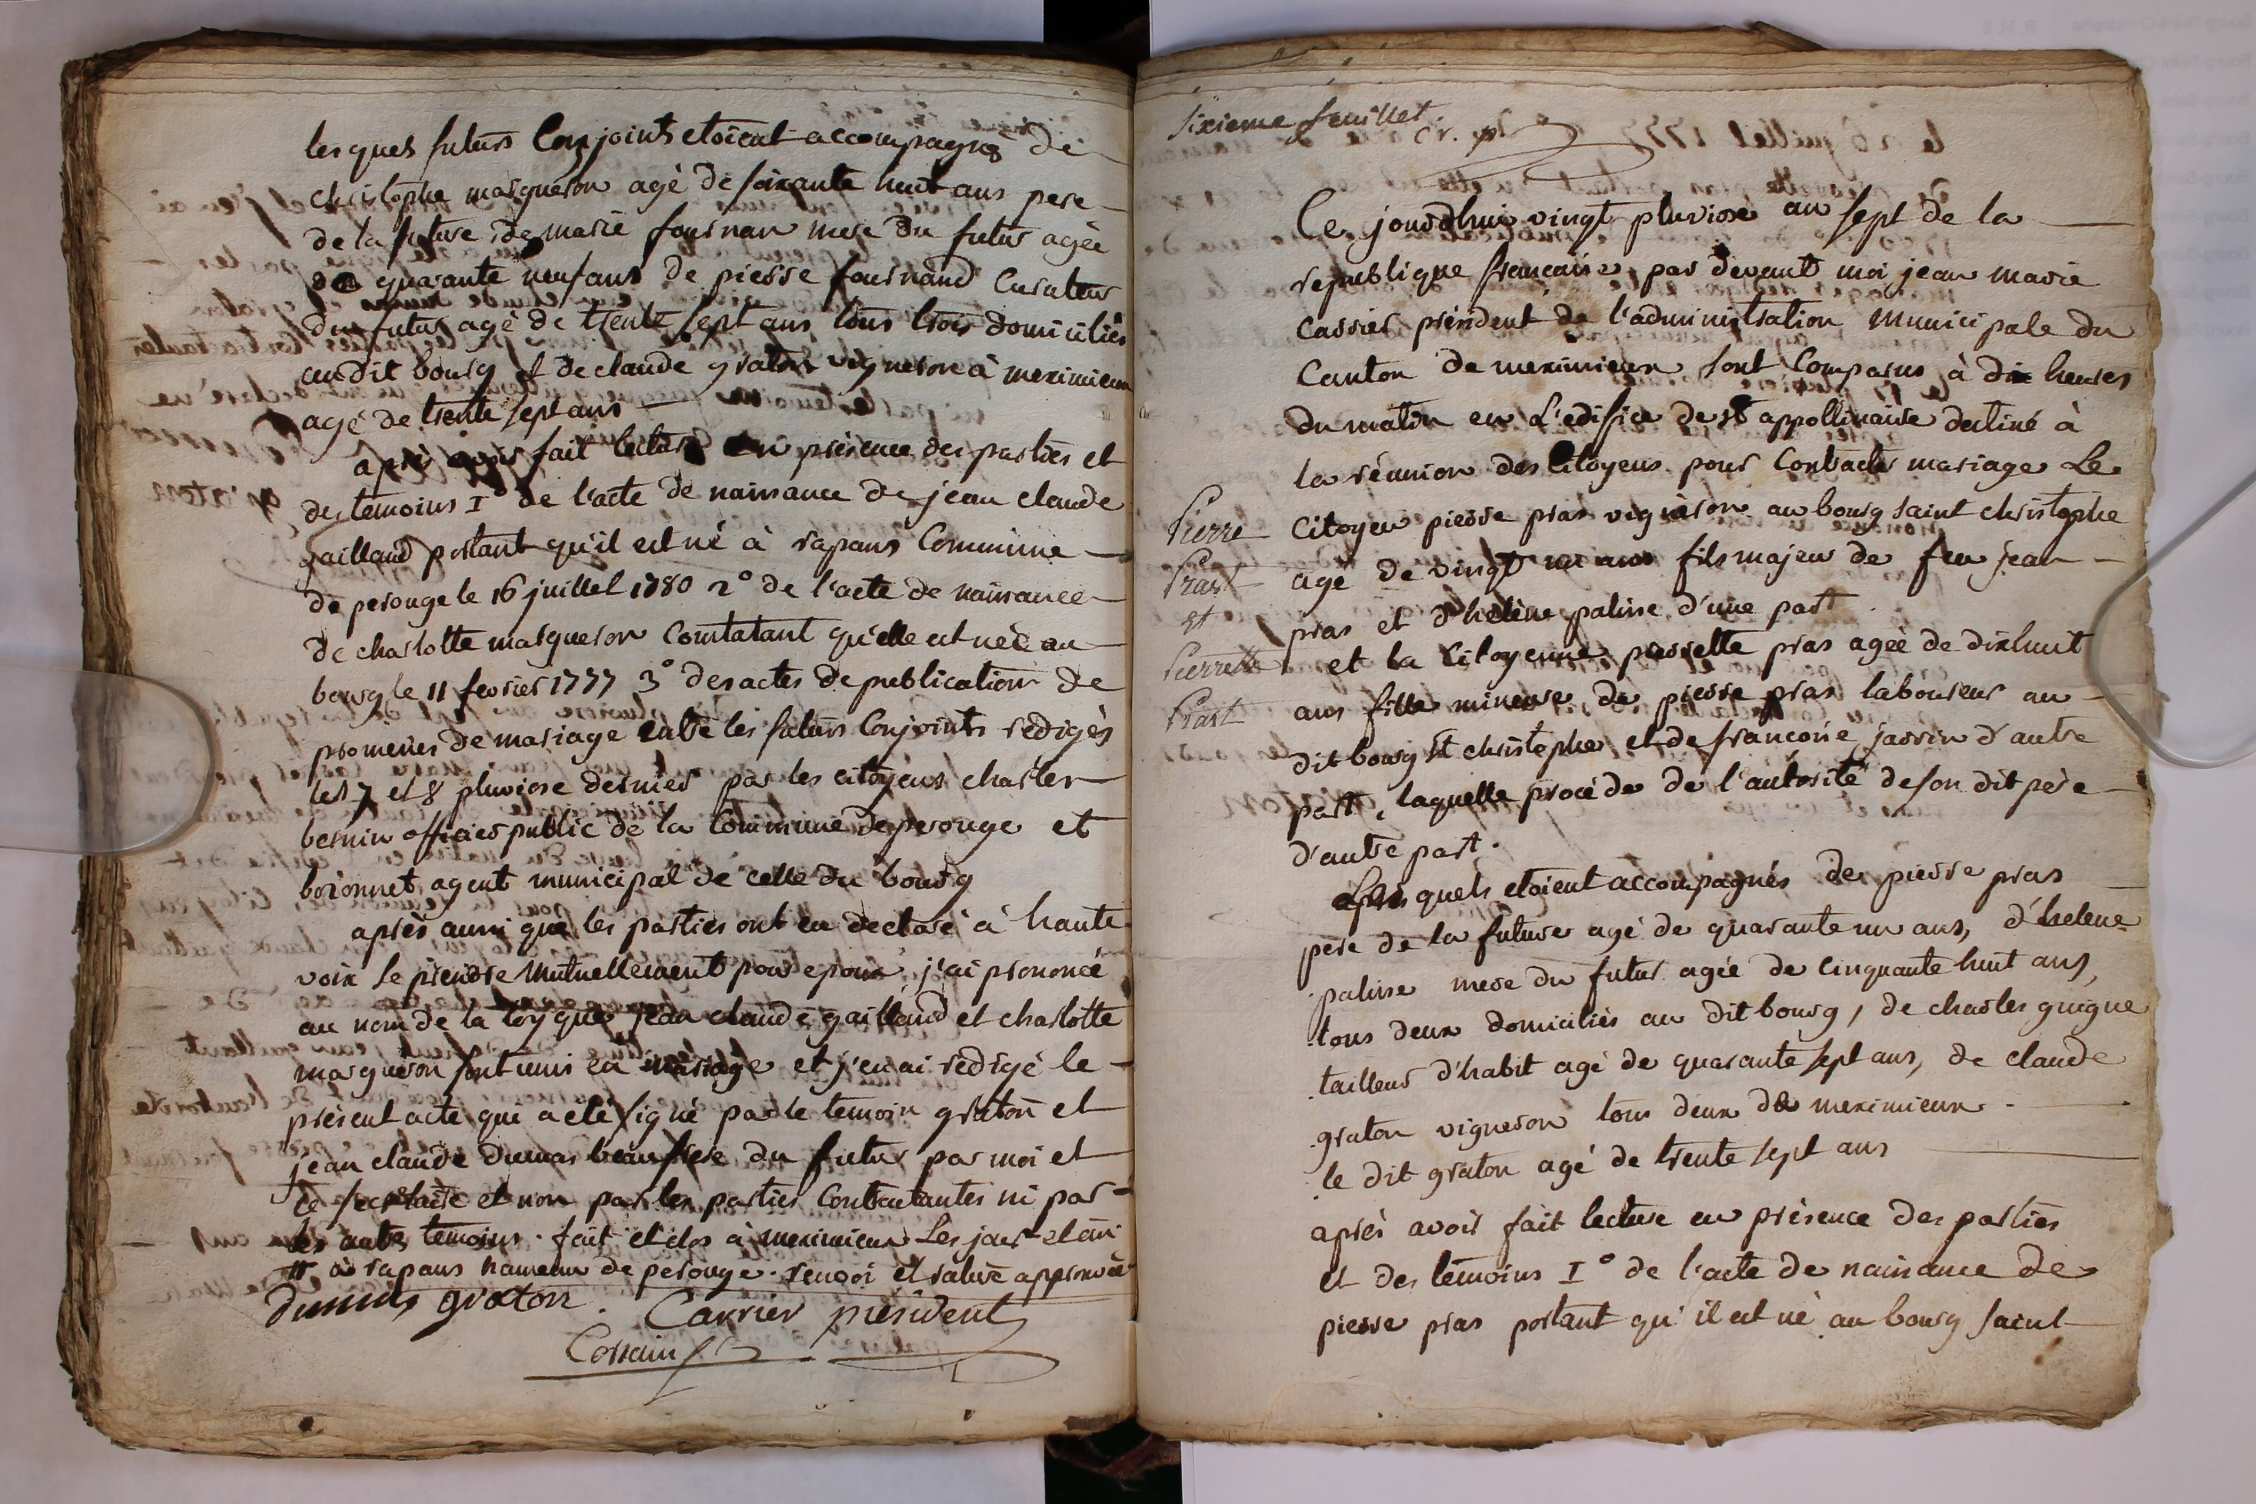 lesquels futurs Conjoints etoient accompagnés de
christophe masqueron agé de soixante huit ans pere
de la future, de marie fournan mere du futur agée
de quarante neuf ans de pierre fournand Curateur
du futur agé de trente sept ans tous trois domiciliés
audit bourg et de claude graton vigneron à meximieux
agé de trente sept ans
après avoir fait lecture en présence des parties et
des temoins 1° de l'acte de naissance de jean claude
gailland portant qu'il est né à rapans Commune
de perouge le 16 juillet 1780 2° de l'acte de naissance
de charlotte masqueron Constatant qu'elle est neé au
bourg le 11 fevrier 1777 3° des actes de publication de
promesses de mariage entre les futurs Conjoints rédigés
les 7 et 8 pluviose dernier par les citoyens charles
bernin officier public de la Commune de perouge et
boisonnet agent municipal de celle du bourg
après aussi que les parties ont eu declaré à haute
voix se prendre mutuellement pour epoux, j'ai prononcé
au nom de la loy que jean claude gailland et charlotte
masqueron sont unis en mariage et j'en ai rédigé le
présent acte que a eté signé par le temoin graton et
jean claude dumas beau frere du futur par moi et
le secretaire et non par les parties Contractantes ni par
les autres temoins. fait et clos à meximieux les jour et an
à rapans hameau de perouge. renvoi et rature approuvé
Dumas graton. Carrier président
Cossain
Sixieme feuillet.
Cr. p
Ce jourdhui vingt pluviose an sept de la
republique française, par devant moi jean marie
Carrier président de l'administration municipale du
Canton de meximieux sont Comparus à dix heures
du matin en l'edifice de st appollinaire destiné à
la réunion des Citoyens pour Contracter mariage Le
Citoyen pierre pras vigneron au bourg saint christophe
agé de vingt un ans fils majeur de feu jean
pras et d'helène paline d'une part.
Pierre
Prast
et
Pierrette
Prast
et la Citoyenne pierrette pras agée de dixhuit
ans fille mineure de pierre pras laboureur au
dit bourg st christophe et de françoise jassin d'autre
part, laquelle procède de l'autorité de son dit père
d'autre part.
lesquels etoient accompagnés de pierre pras
pere de la future agé de quarante un ans, d'helene
paline mere du futur agée de Cinquante huit ans,
tous deux domiciliés au dit bourg, de charles guigue
tailleur d'habit agé de quarante sept ans, de claude
graton vigneron tous deux de meximieux.
le dit graton agé de trente sept ans
après avoir fait lecture en présence des parties
et des temoins 1° de l'acte de naissance de
pierre pras portant qu'il est né au bourg saint